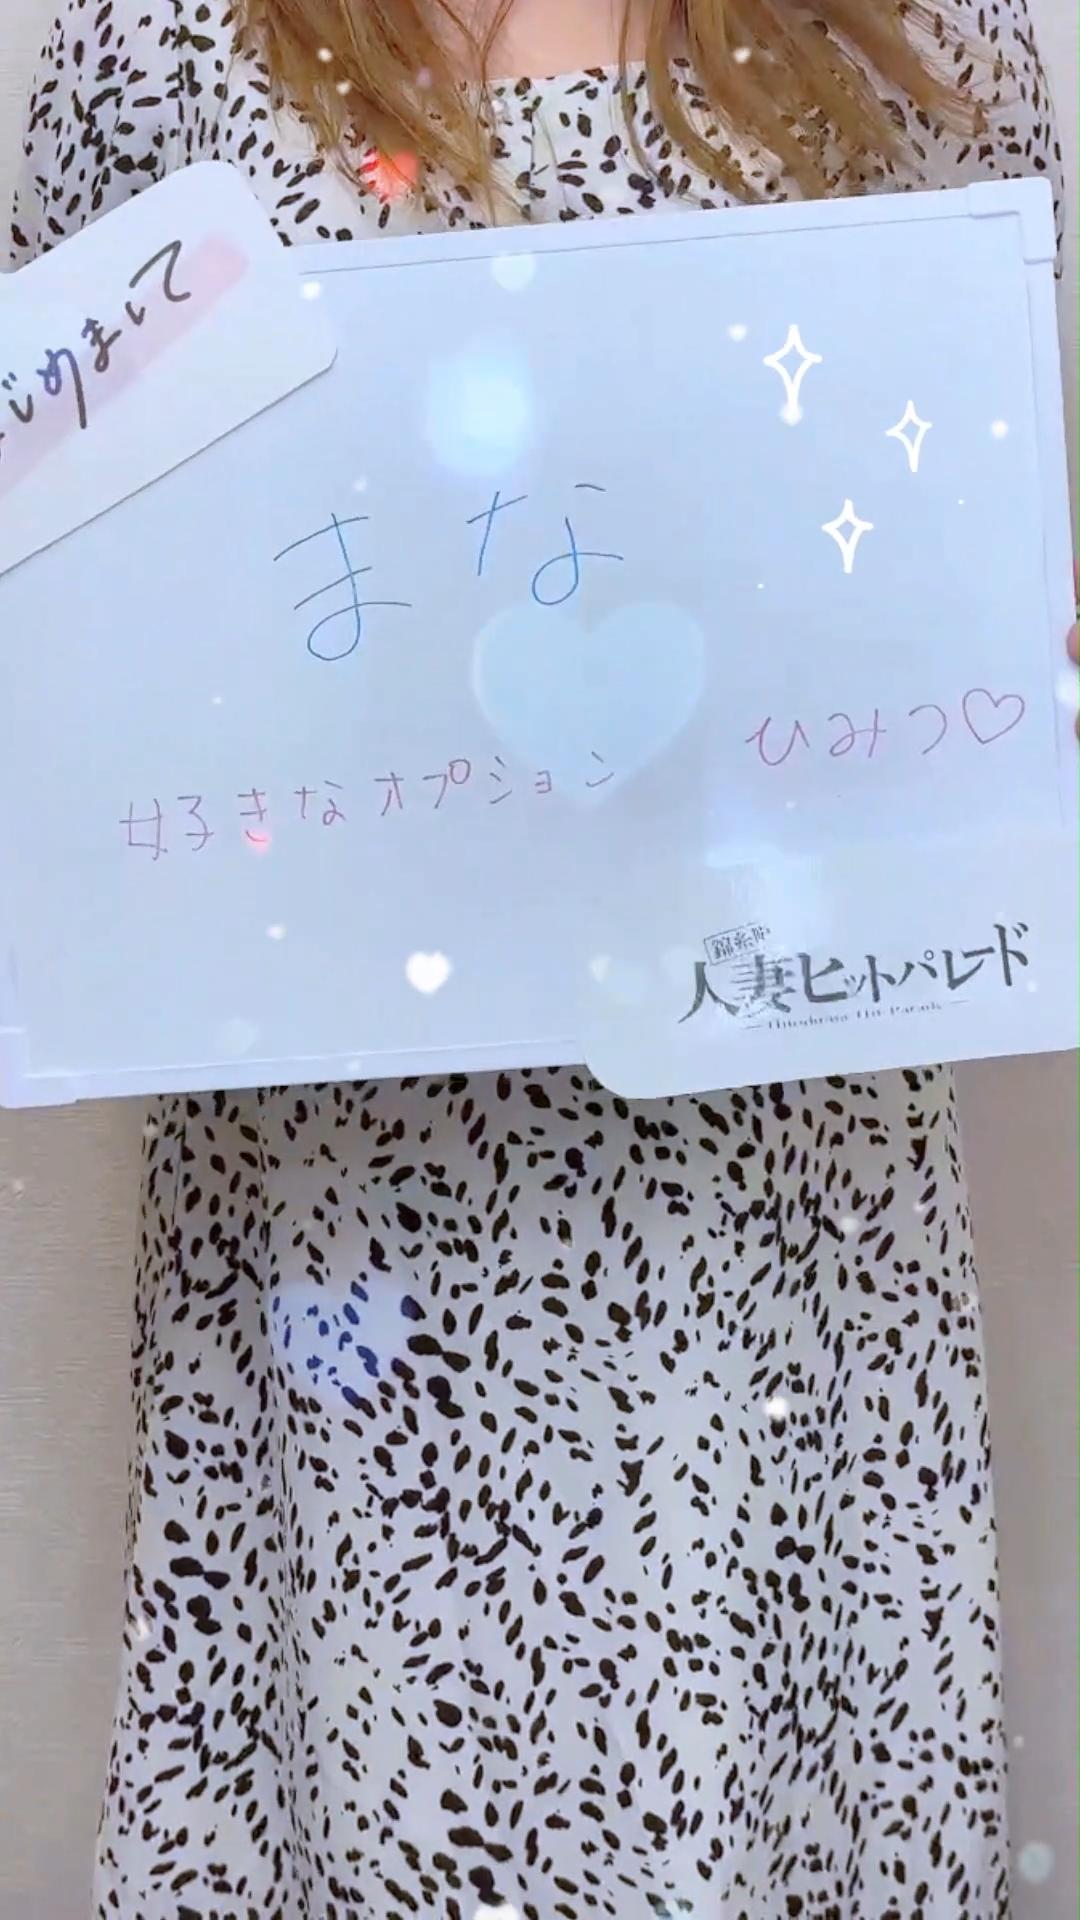 じめまして
まな
好きなオプション ひみつ♡
錦糸町
人妻ヒットパレード